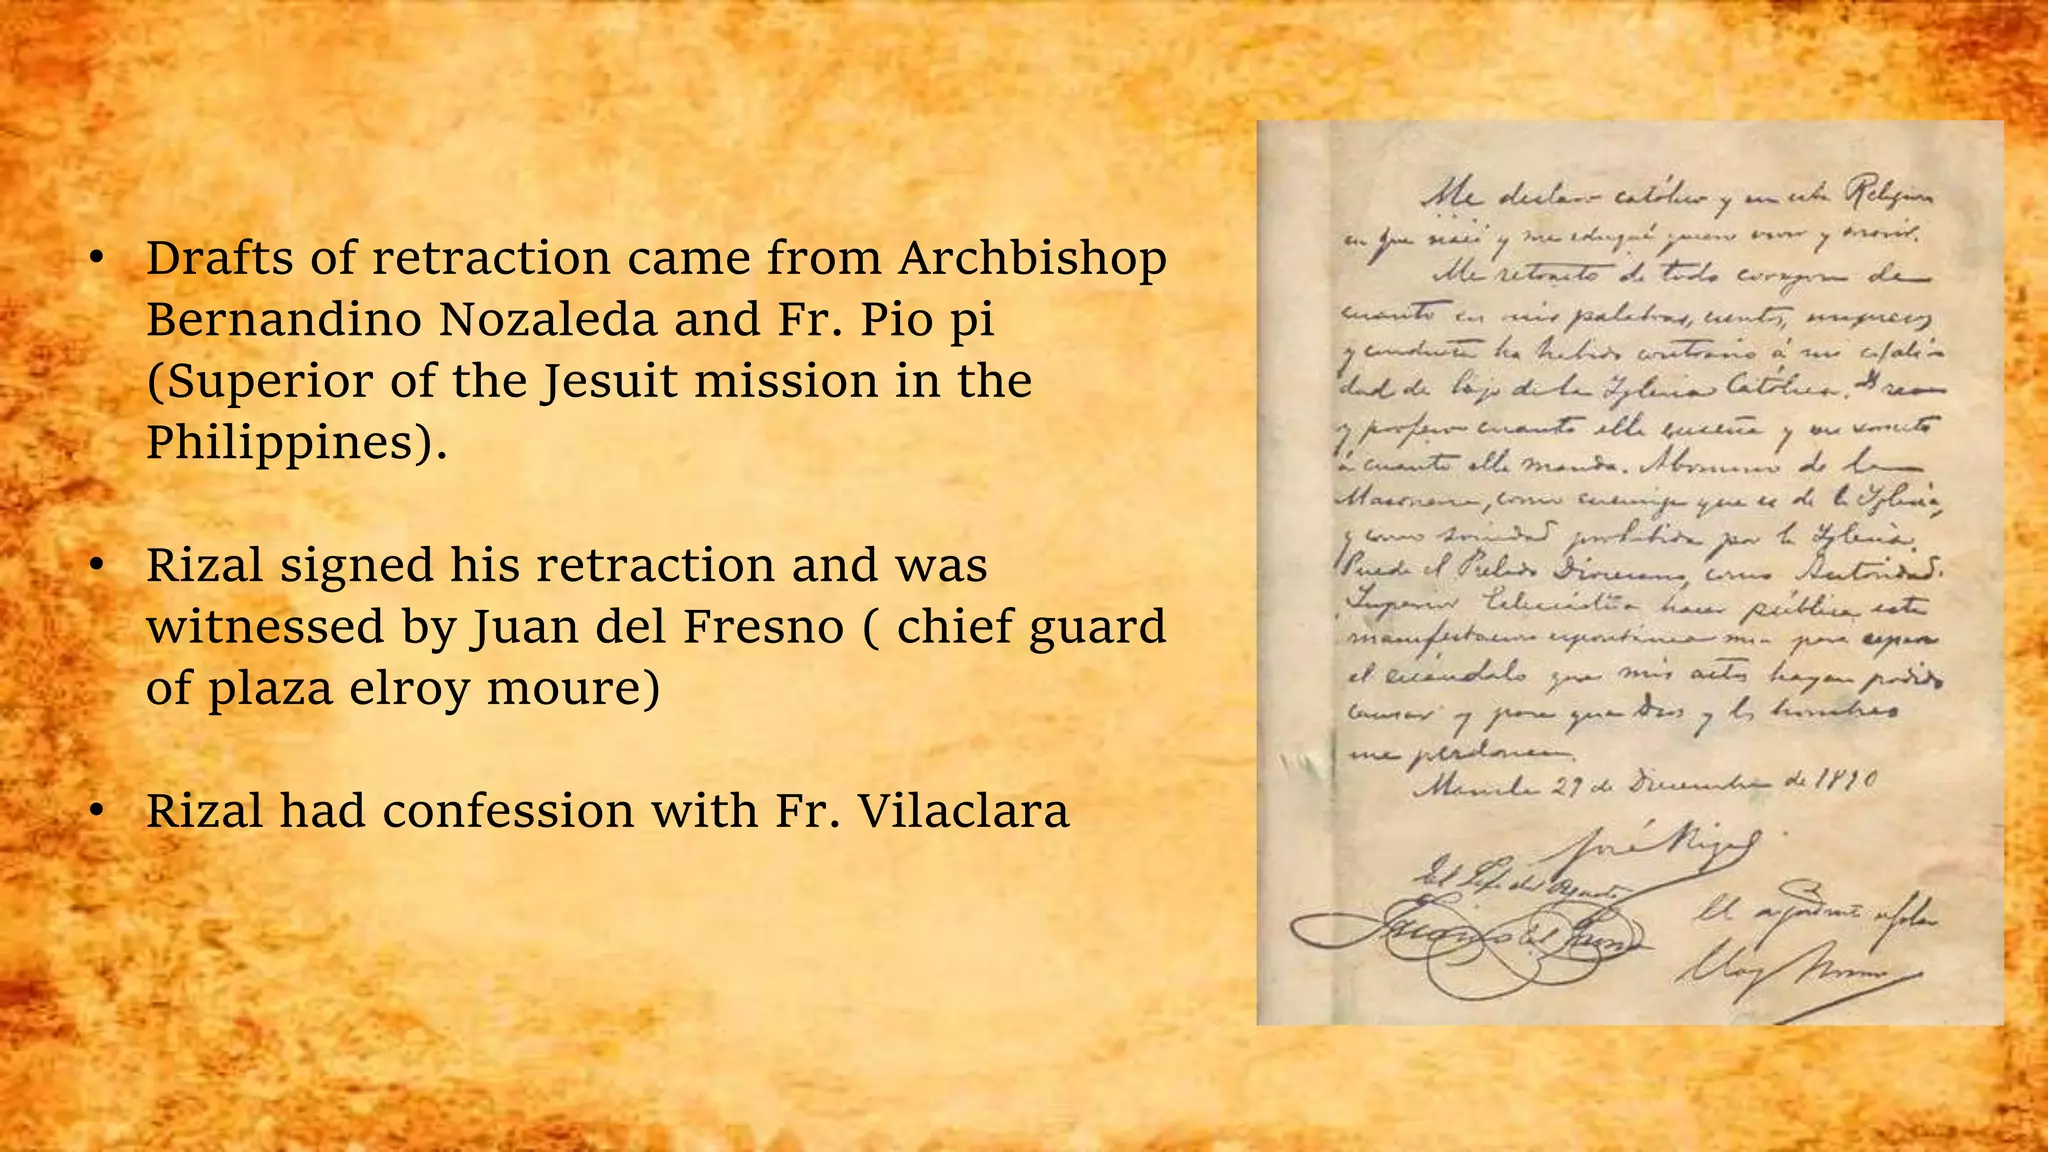 • Drafts of retraction came from Archbishop
Bernandino Nozaleda and Fr. Pio pi
(Superior of the Jesuit mission in the
Philippines).
• Rizal signed his retraction and was
witnessed by Juan del Fresno ( chief guard
of plaza elroy moure)
• Rizal had confession with Fr. Vilaclara
Me declaro católico y en esta Religion
en que nací y me eduqué quiero vivir y morir.
Me retracto de todo corazon de
cuanto en mis palabras, escritos, impresos
y conducta ha habido contrario á mi cali
dad de hijo de la Iglesia Católica. Creo
y profeso cuanto ella enseña y me someto
á cuanto ella manda. Abomino de la
Masoneria, como enemiga que es de la Iglesia,
y como sociedad prohibida por la Iglesia.
Puede el Prelado Diocesano, como Autoridad
Superior Eclesiástica hacer pública esta
manifestacion espontánea mia para reparar
el escándalo que mis actos hayan podido
causar y para que Dios y los hombres
me perdonen.
Manila 29 de Diciembre de 1890
José Rizal
El Jefe del Piquete
Juan del Fresno
El ayudante de Plaza
Eloy Moure